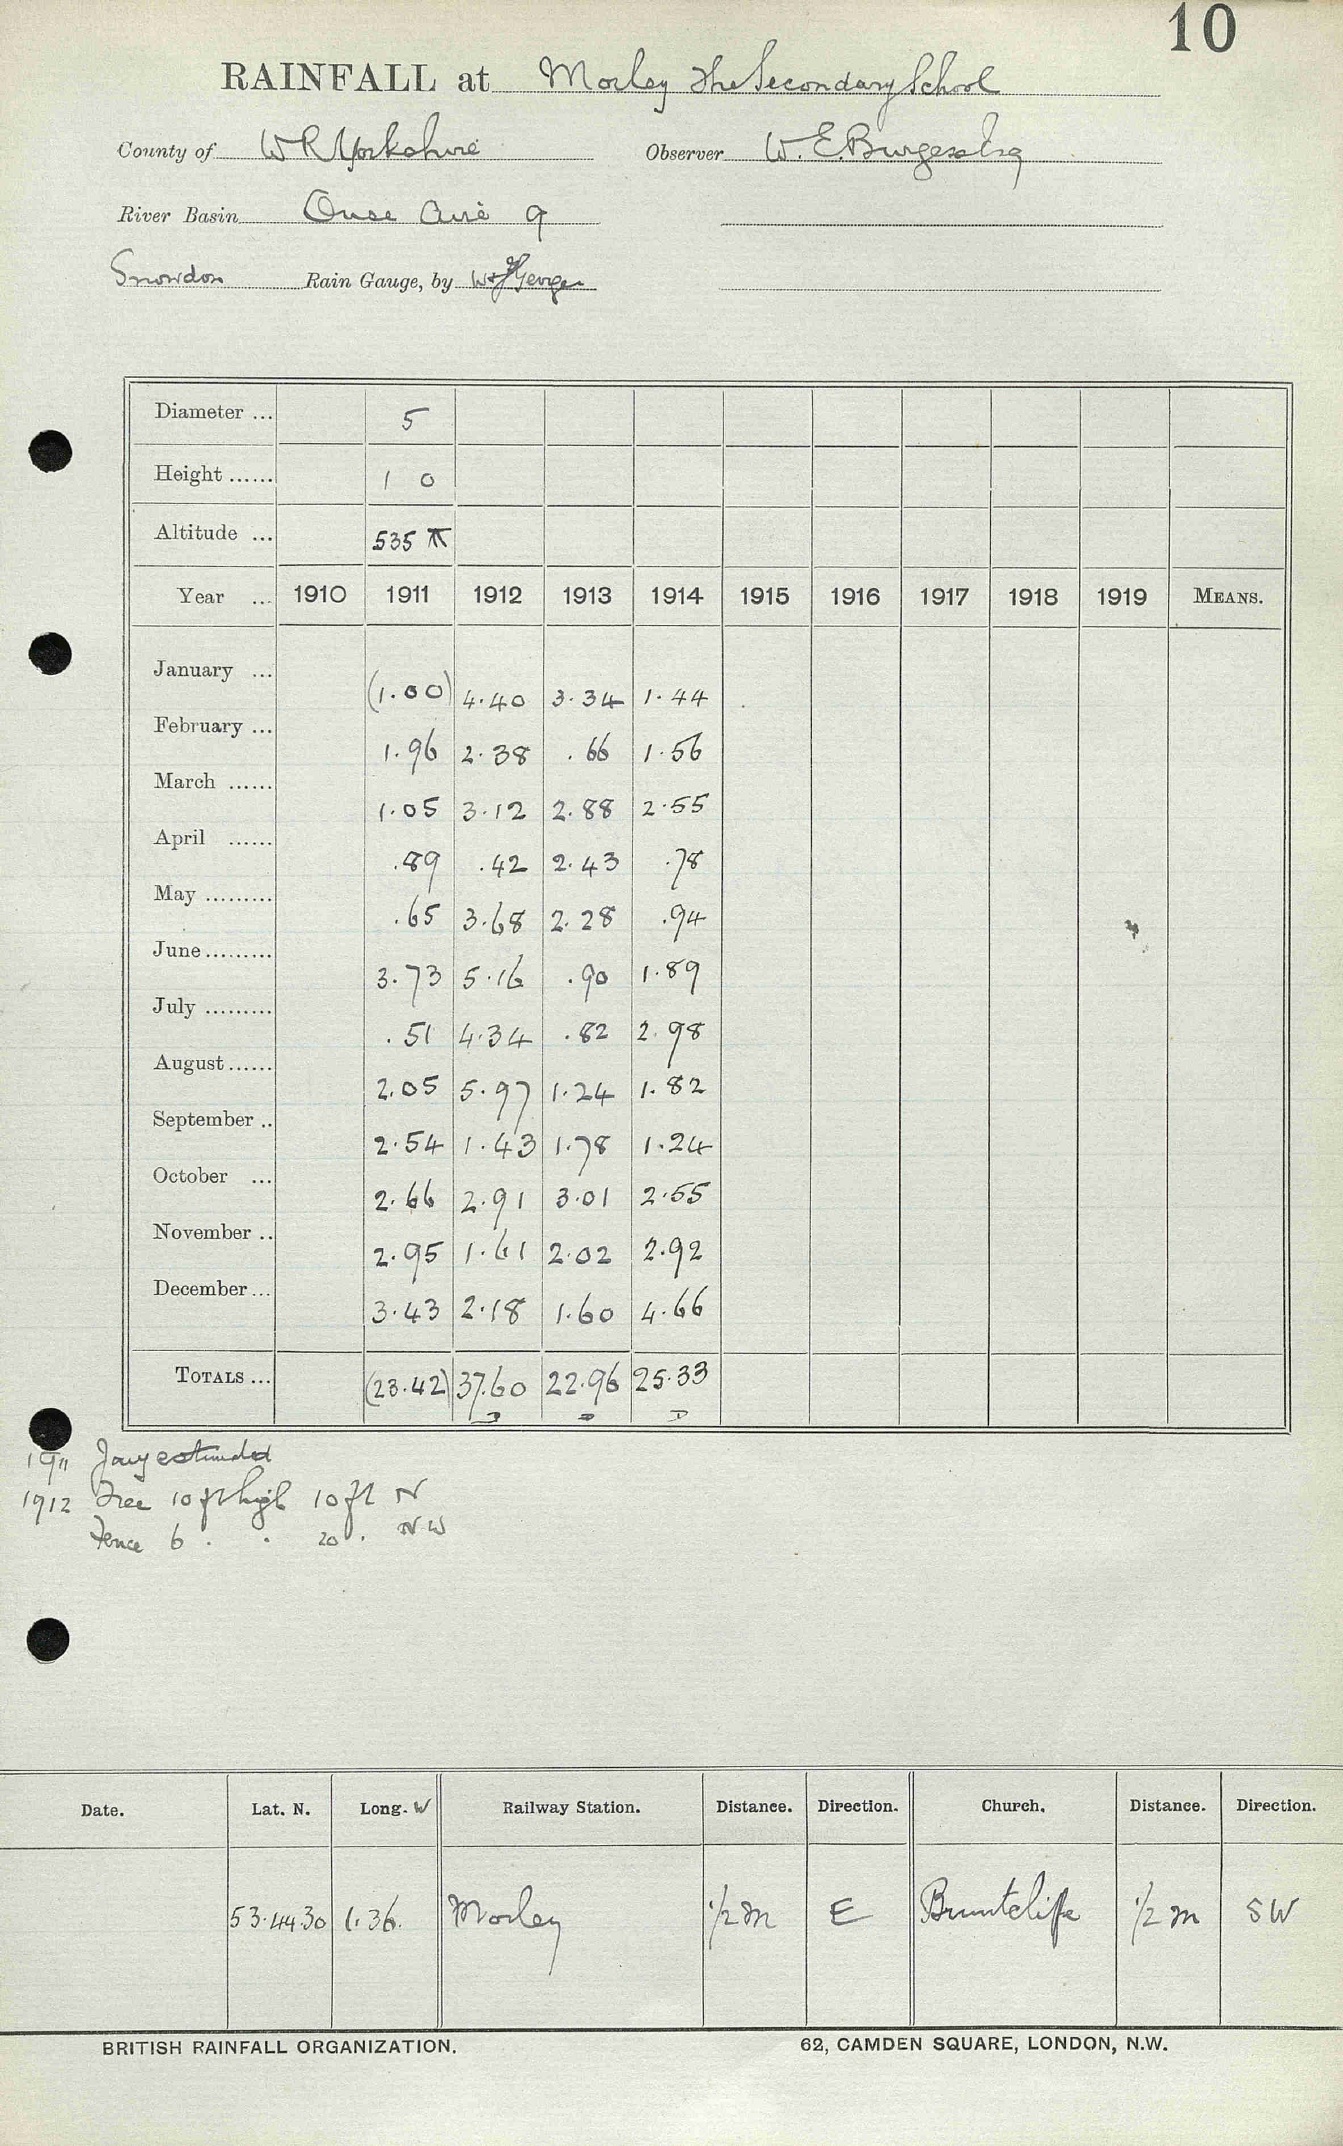 10
RAINFALL at Morley The Secondary School
County of W R Yorkshire Observer W. E. Burgess Esq
River Basin Ouse Aire 9
Snowdon Rain Gauge, by W & J George
Diameter ... 5
Height ...... 1 0
Altitude ... 535
Year ... 1910 1911 1912 1913 1914 1915 1916 1917 1918 1919 MEANS.
January ... (1.00) 4.40 3.34 1.44
February ... 1.96 2.38 .66 1.56
March ...... 1.05 3.12 2.88 2.55
April ...... .89 .42 2.43 .78
May ......... .65 3.68 2.28 .94
June ......... 3.73 5.16 .90 1.89
July ......... .51 4.34 .82 2.98
August ...... 2.05 5.97 1.24 1.82
September .. 2.54 1.43 1.78 1.24
October ... 2.66 2.91 3.01 2.55
November .. 2.95 1.61 2.02 2.92
December ... 3.43 2.18 1.60 4.66
TOTALS ... (23.42) 37.60 22.96 25.33
1911 Jany estimated
1912 Tree 10 ft high 10 ft N
Fence 6 . . 20 . NW
Date. Lat. N. Long. W Railway Station. Distance. Direction. Church. Distance. Direction.
53.44.30 1.36. Morley 1/2 m E Bruntcliffe 1/2 m SW
BRITISH RAINFALL ORGANIZATION. 62, CAMDEN SQUARE, LONDON, N.W.